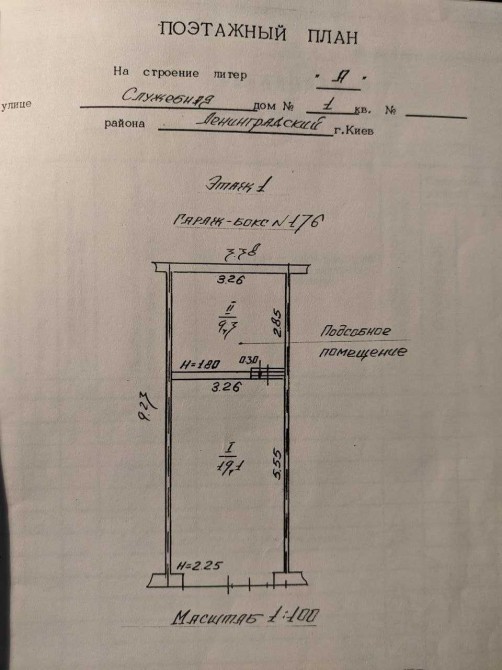 ПОЭТАЖНЫЙ ПЛАН
На строение литер "А"
улице Служебная дом № 1 кв. №
района Ленинградский г.Киев
Этаж 1
Гараж-бокс №176
3.38
3.26
II
9,3
2.85
Подсобное
помещение
H=1.80
0.30
3.26
9.23
I
19,1
5.55
H=2.25
Масштаб 1:100